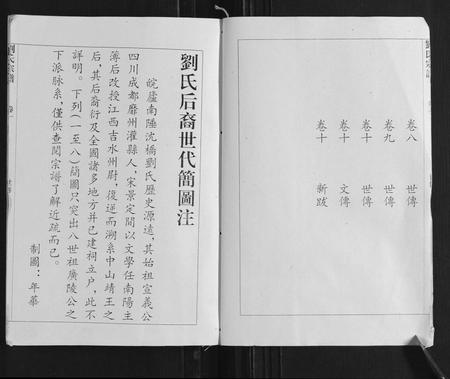 劉氏宗譜
卷八 世傳
卷九 世傳
卷十 世傳
卷十 文傳
卷十 新跋
劉氏后裔世代簡圖注
皖廬南陲沈橋劉氏歷史源遠,其始祖宣義公
四川成都靡州灌縣人,宋景定間以文學任南陽主
薄后改授江西吉水州尉,復逆而溯系中山靖王之
后,其后裔衍及全國諸多地方并已建祠立户,此不
詳明。下列(一至八)簡圖只突出八世祖廣陵公之
下派脉系,僅供查閱宗譜了解近疏而已。
制圖:年華
劉氏宗譜